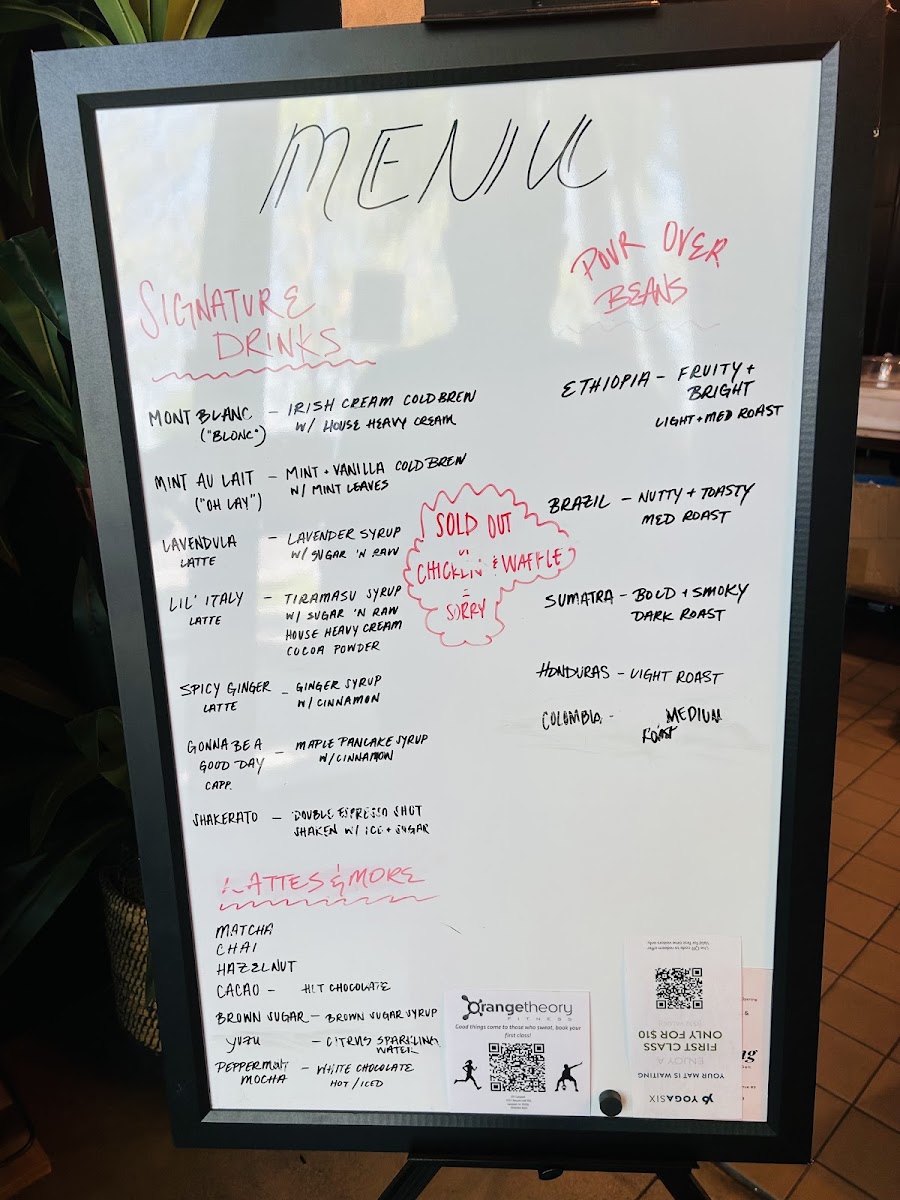 MENU
SIGNATURE
DRINKS
MONT BLANC - IRISH CREAM COLD BREW
("BLONC") W/ HOUSE HEAVY CREAM
MINT AU LAIT - MINT + VANILLA COLD BREW
("OH LAY") W/ MINT LEAVES
LAVENDULA - LAVENDER SYRUP
LATTE W/ SUGAR 'N RAW
LIL' ITALY - TIRAMASU SYRUP
LATTE W/ SUGAR 'N RAW
HOUSE HEAVY CREAM
COCOA POWDER
SPICY GINGER - GINGER SYRUP
LATTE W/ CINNAMON
GONNA BE A - MAPLE PANCAKE SYRUP
GOOD DAY W/ CINNAMON
CAPP.
SHAKERATO - DOUBLE ESPRESSO SHOT
SHAKEN W/ ICE + SUGAR
LATTES & MORE
MATCHA
CHAI
HAZELNUT
CACAO - HOT CHOCOLATE
BROWN SUGAR - BROWN SUGAR SYRUP
YUZU - CITRUS SPARKLING
WATER
PEPPERMINT - WHITE CHOCOLATE
MOCHA HOT / ICED
SOLD OUT
CHICKEN & WAFFLE
SORRY
POUR OVER
BEANS
ETHIOPIA - FRUITY +
BRIGHT
LIGHT + MED ROAST
BRAZIL - NUTTY + TOASTY
MED ROAST
SUMATRA - BOLD + SMOKY
DARK ROAST
HONDURAS - LIGHT ROAST
COLOMBIA - MEDIUM
ROAST
orangetheory
FITNESS
Good things come to those who sweat, book your
first class!
YOGASIX
YOUR MAT IS WAITING
ENJOY A
FIRST CLASS
ONLY FOR $10